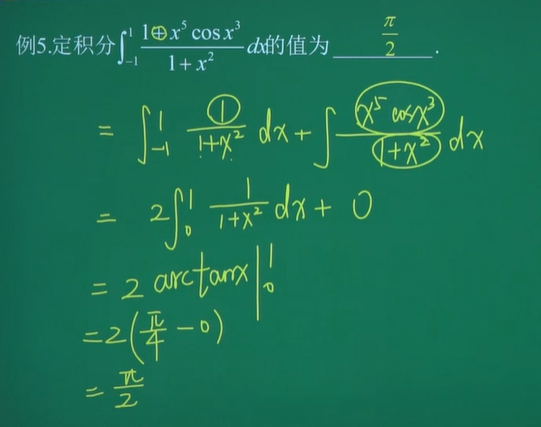 例5.定积分∫₋₁¹ (1+x⁵cosx³)/(1+x²) dx的值为 π/2 .
= ∫₋₁¹ 1/(1+x²) dx + ∫ (x⁵ cosx³)/(1+x²) dx
= 2∫₀¹ 1/(1+x²) dx + 0
= 2 arctanx |₀¹
=2(π/4 −0)
= π/2